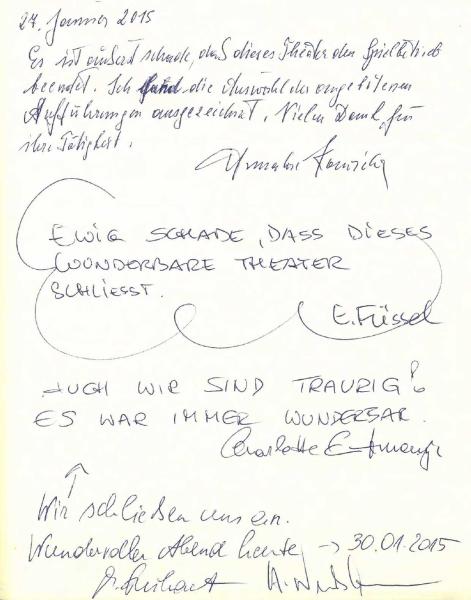 27. Januar 2015
Es ist äußerst schade, daß dieses Theater den Spielbetrieb
beendet. Ich fand die Auswahl der angebotenen
Aufführungen ausgezeichnet. Vielen Dank für
ihre Tätigkeit.
EWIG SCHADE, DASS DIESES
WUNDERBARE THEATER
SCHLIESST.
E. Füssel
AUCH WIR SIND TRAURIG!
ES WAR IMMER WUNDERBAR.
Charlotte
Wir schließen uns an.
Wundervoller Abend heute → 30.01.2015